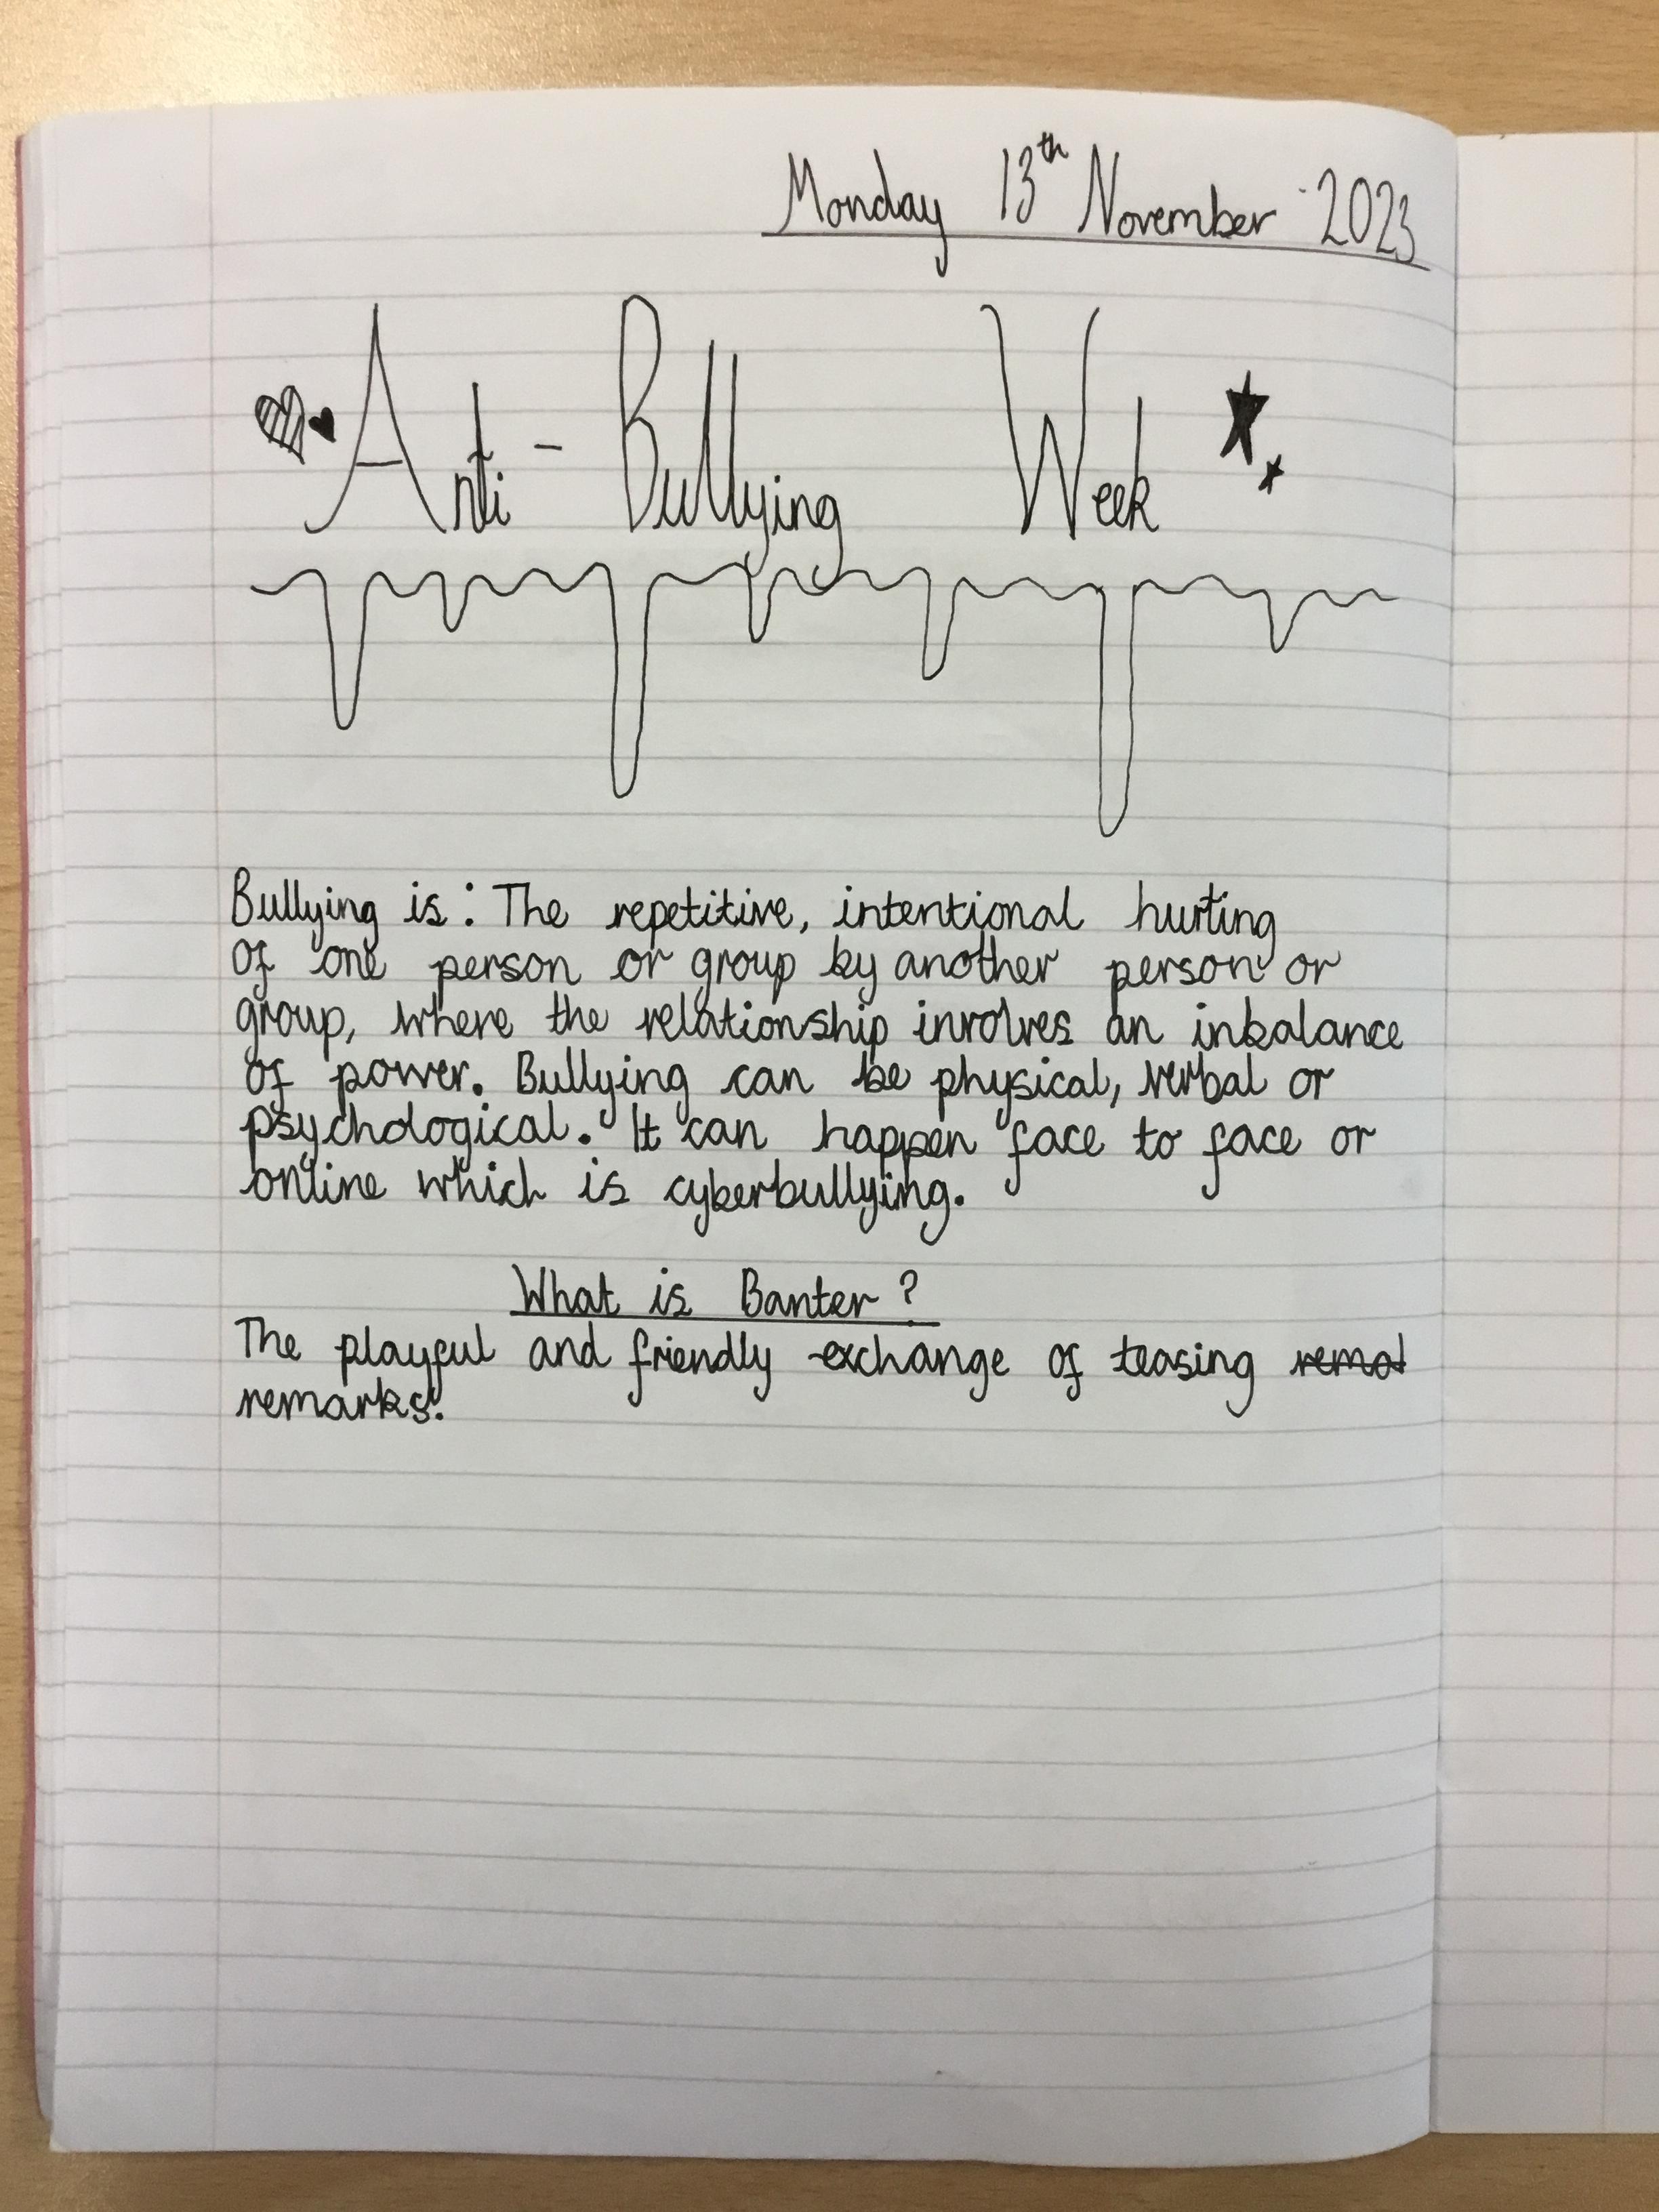 Monday 13th November 2023
Anti-Bullying Week
Bullying is: The repetitive, intentional hurting
of one person or group by another person or
group, where the relationship involves an inbalance
of power. Bullying can be physical, verbal or
psychological. It can happen face to face or
online which is cyberbullying.
What is Banter?
The playful and friendly exchange of teasing remot
remarks.